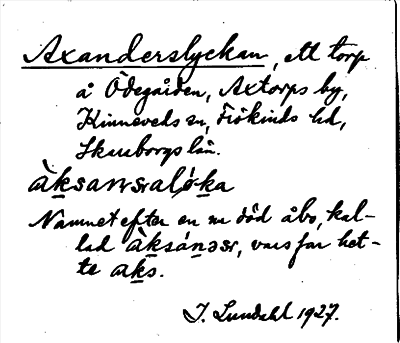 Axanderslyckan, ett torp
å Ödegården, Axtorps by,
Kinneveds sn, Frökinds hd,
Skaraborgs län.
Namnet efter en nu död åbo, kal-
lad àksánəsr, vars far het-
te aks.
J. Lundahl 1927.